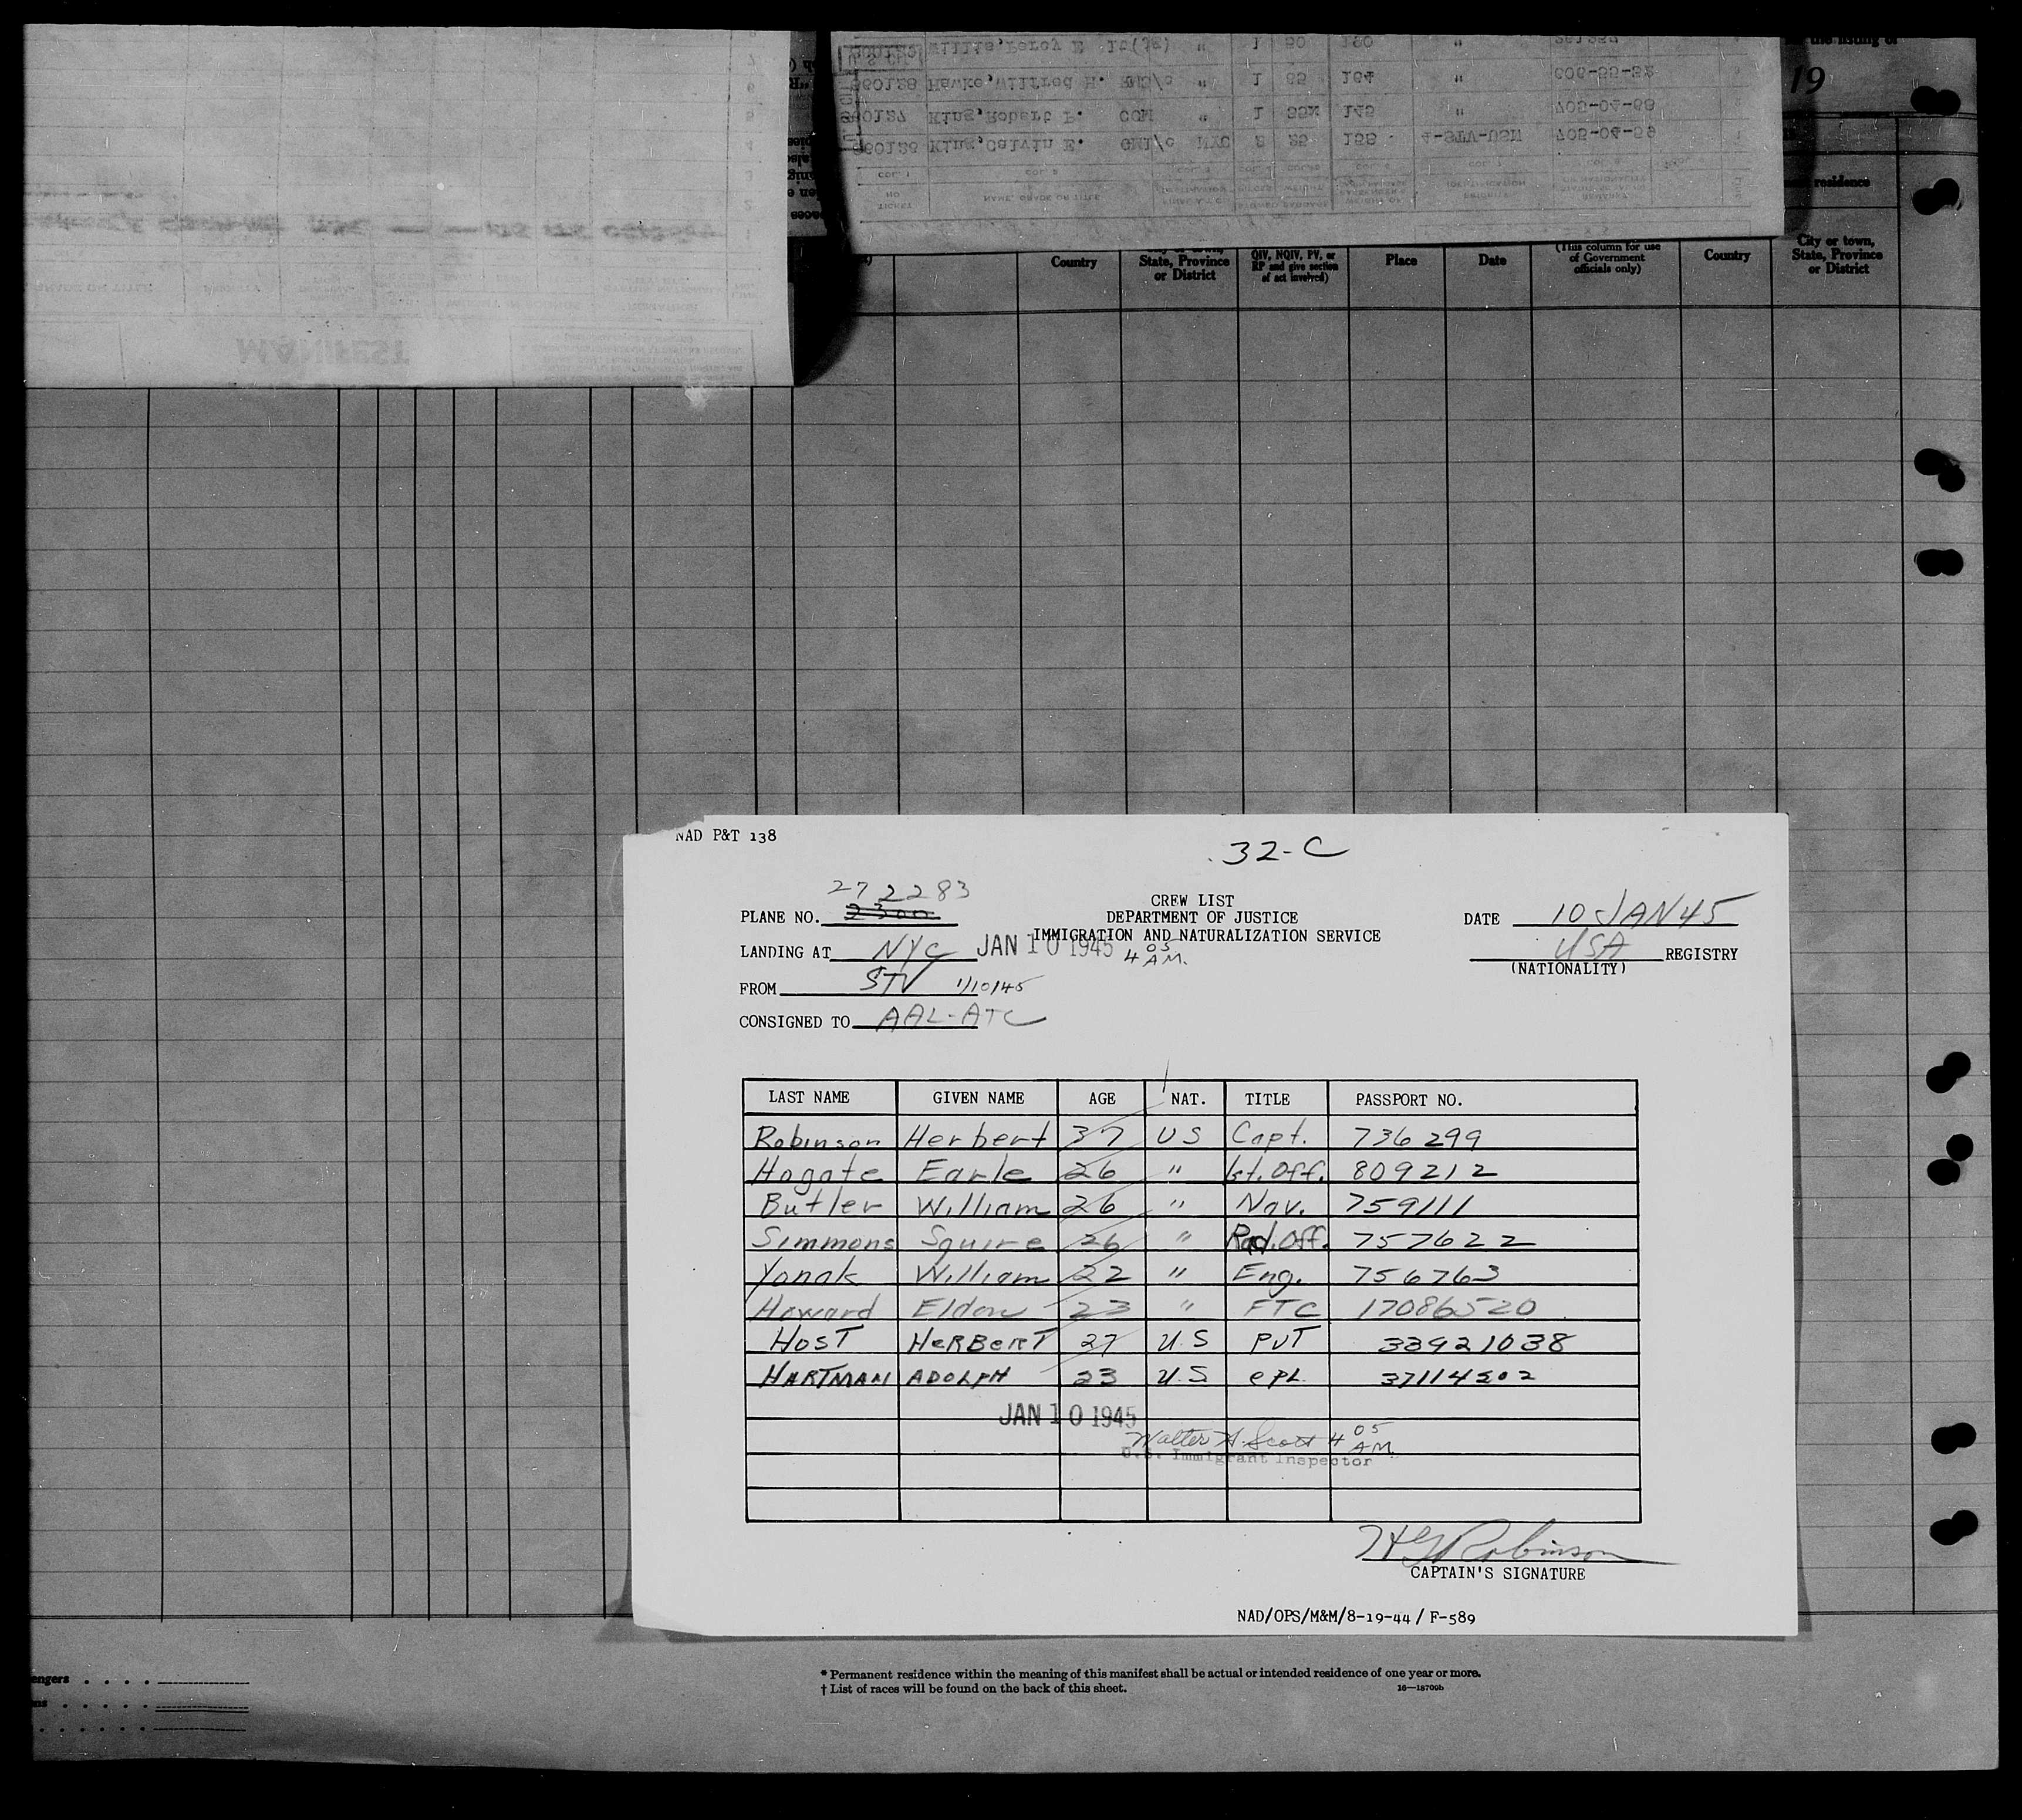 19
the listing of
residence
Country
State, Province
or District
QIV, NQIV, PV, or
RP and give section
of act involved)
Place
Date
(This column for use
of Government
officials only)
Country
City or town,
State, Province
or District
MANIFEST
Hawke, Wilfred H.
King, Robert P. COM " 1 145 " 703-04-68
King, Calvin E. GM1/c NYC 4-STV-USN 703-04-69
NAD P&T 138
32-C
272283
PLANE NO. 2300
CREW LIST
DEPARTMENT OF JUSTICE
IMMIGRATION AND NATURALIZATION SERVICE
DATE 10 JAN 45
LANDING AT NYC JAN 10 1945 4 05 AM.
USA REGISTRY
(NATIONALITY)
FROM STV 1/10/45
CONSIGNED TO AAL-ATC
LAST NAME GIVEN NAME AGE NAT. TITLE PASSPORT NO.
Robinson Herbert 37 US Capt. 736299
Hogate Earle 26 " 1st. Off. 809212
Butler William 26 " Nav. 759111
Simmons Squire 26 " Rad. Off. 757622
Yonak William 22 " Eng. 756763
Howard Eldon 23 " FTC 17086520
HOST HERBERT 27 U.S PVT 33921038
HARTMAN ADOLPH 23 U.S CPL 37114502
JAN 10 1945
Walter H. Scott 4 05 AM.
U.S. Immigrant Inspector
H G Robinson
CAPTAIN'S SIGNATURE
NAD/OPS/M&M/8-19-44 / F-589
engers
* Permanent residence within the meaning of this manifest shall be actual or intended residence of one year or more.
† List of races will be found on the back of this sheet.
16—18709b